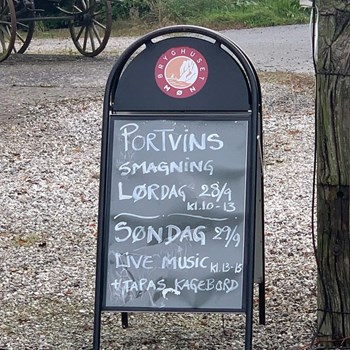 BRYGHUSET
MØN
PORTVINS
SMAGNING
LØRDAG 28/9
kl.10-13
SØNDAG 29/9
LIVE MUSIC kl.13-15
+ TAPAS KAGEBORD